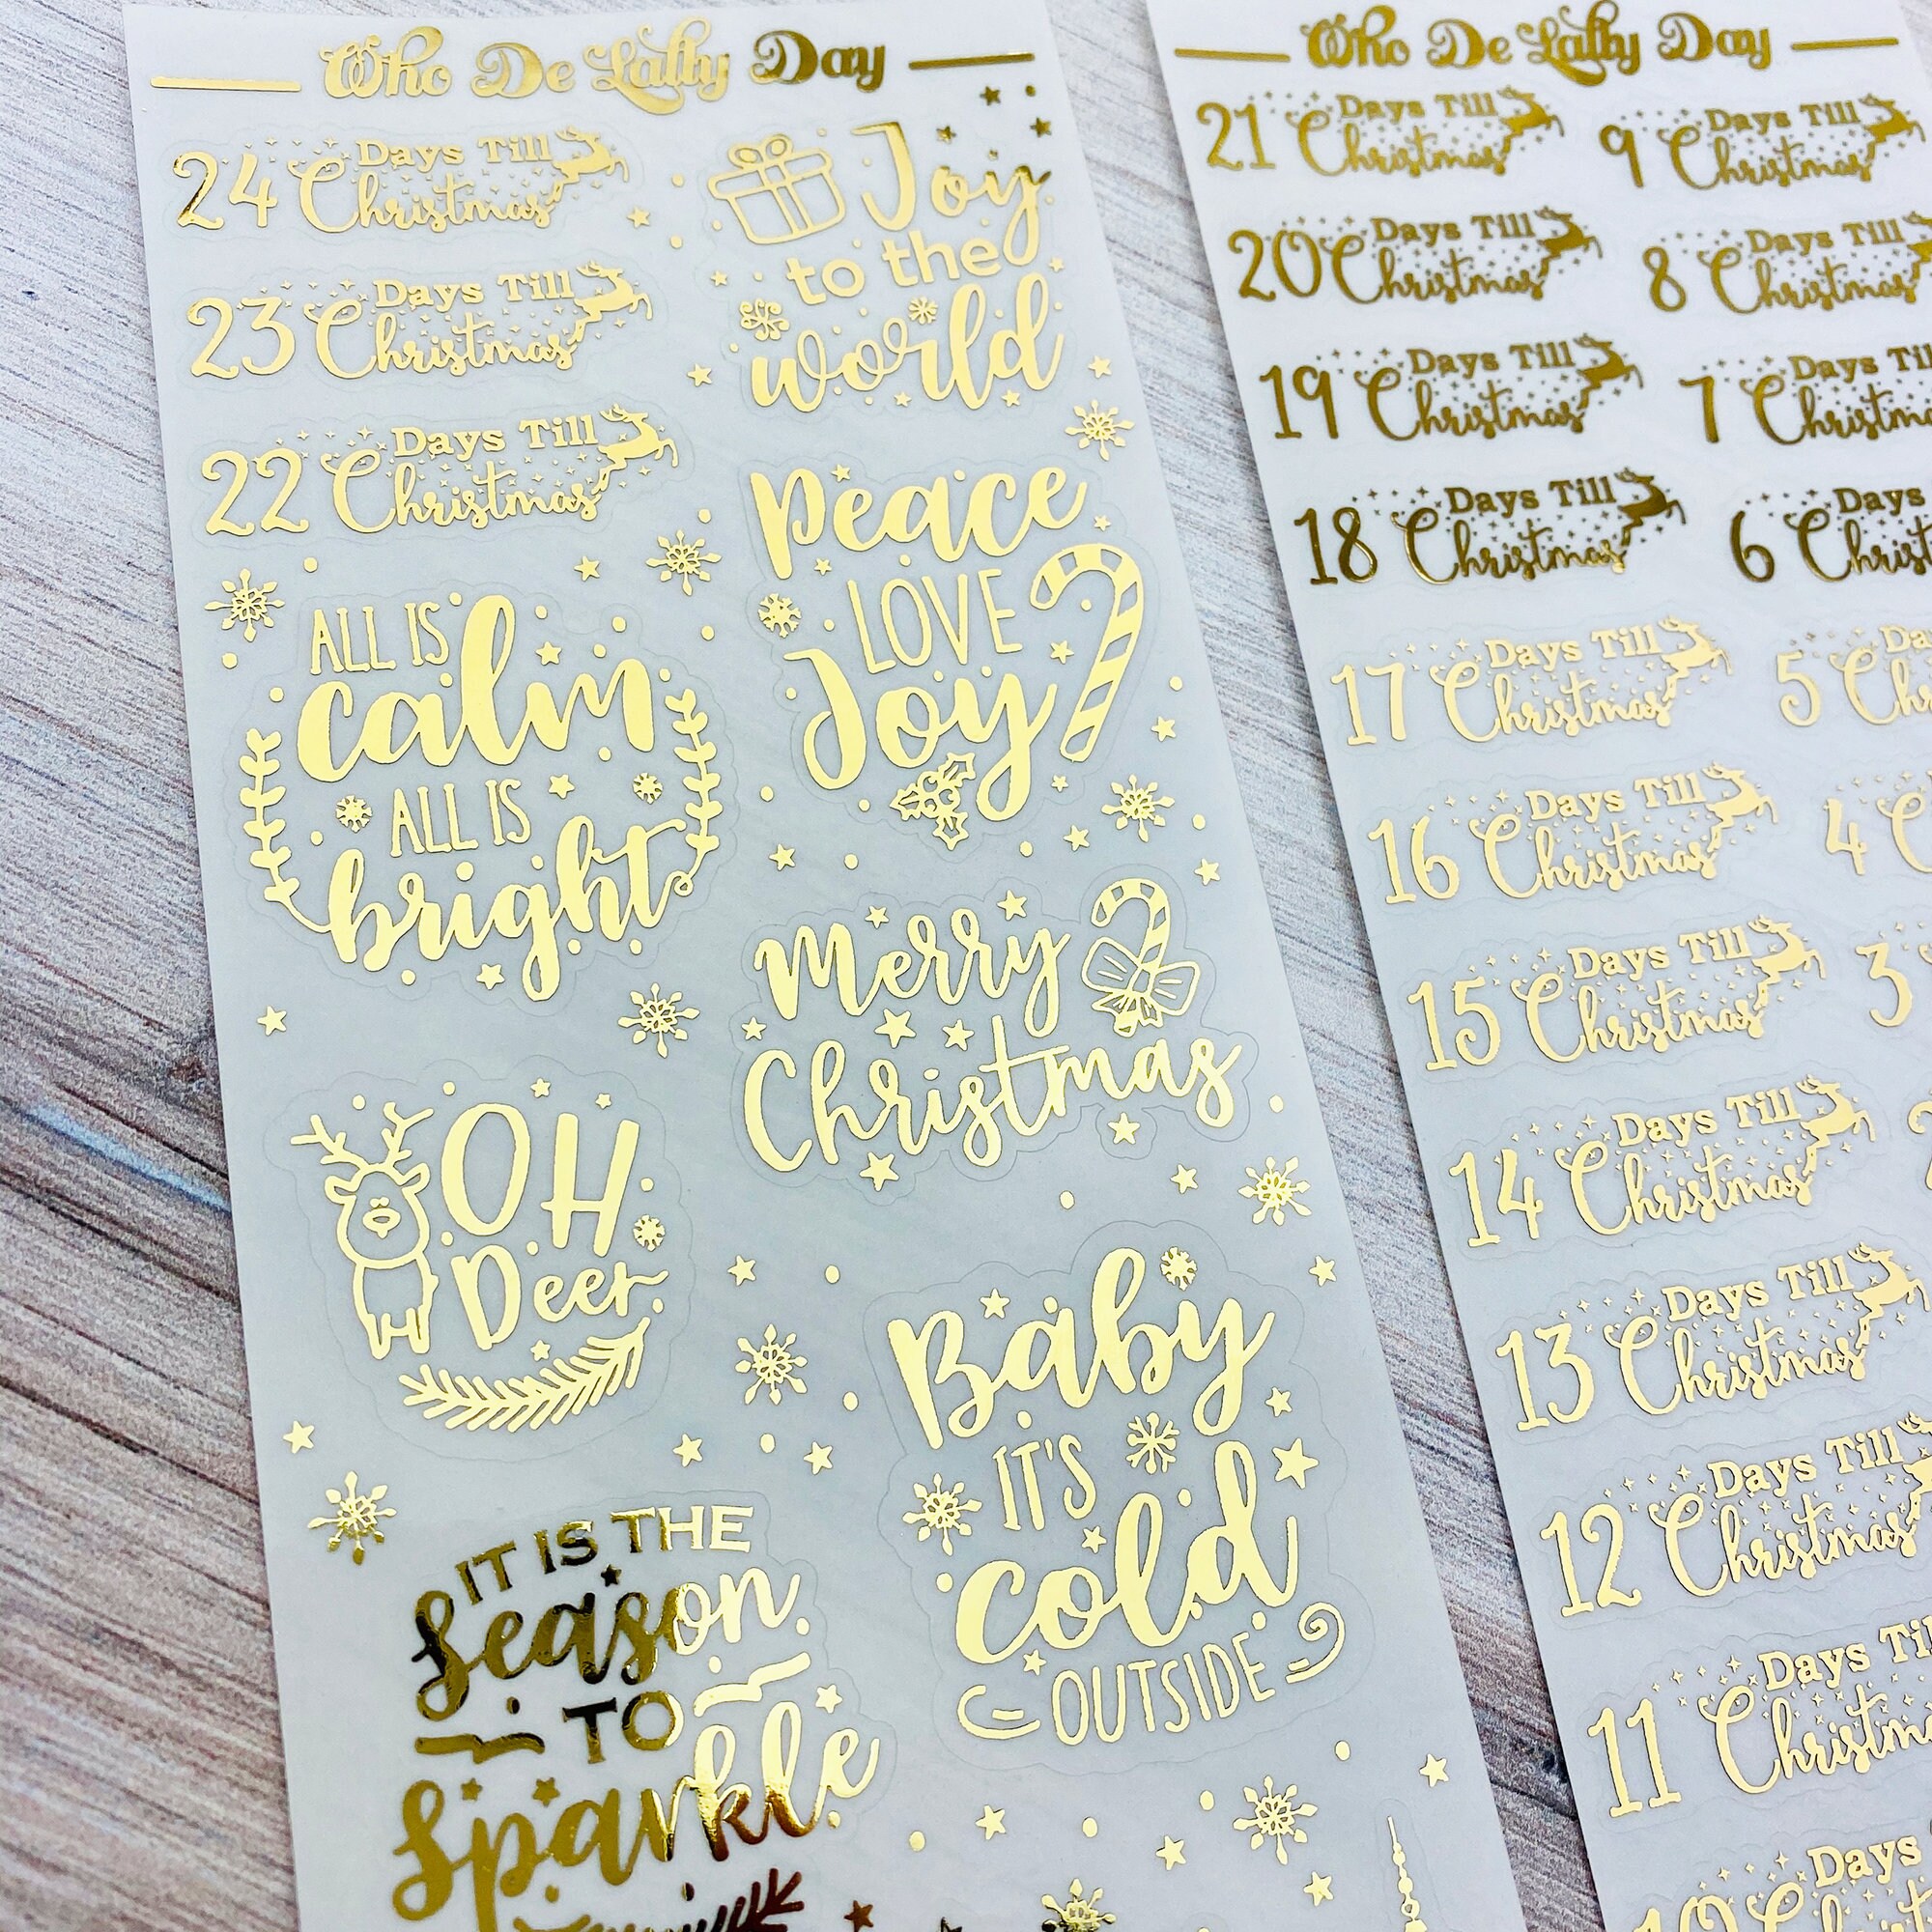 Who De Lally Day
24 Days Till
Christmas
23 Days Till
Christmas
22 Days Till
Christmas
Joy
to the
world
ALL IS
calm
ALL IS
bright
Peace
LOVE
Joy
Merry
Christmas
OH
Deer
Baby
IT'S
cold
OUTSIDE
IT IS THE
Season
TO
Sparkle
Who De Lally Day
21 Days Till
Christmas
20 Days Till
Christmas
19 Days Till
Christmas
18 Days Till
Christmas
17 Days Till
Christmas
16 Days Till
Christmas
15 Days Till
Christmas
14 Days Till
Christmas
13 Days Till
Christmas
12 Days Till
Christmas
11 Days Til
Christm
10 Days
9 Days Till
Christmas
8 Days Till
Christmas
7 Days Til
Christm
6 Days
Christ
5 Da
Ch
4
3